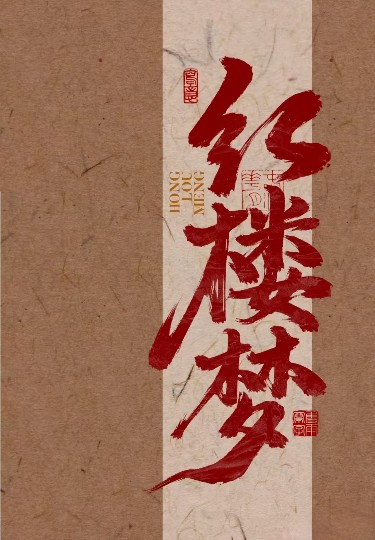 红楼梦
HONG
LOU
MENG